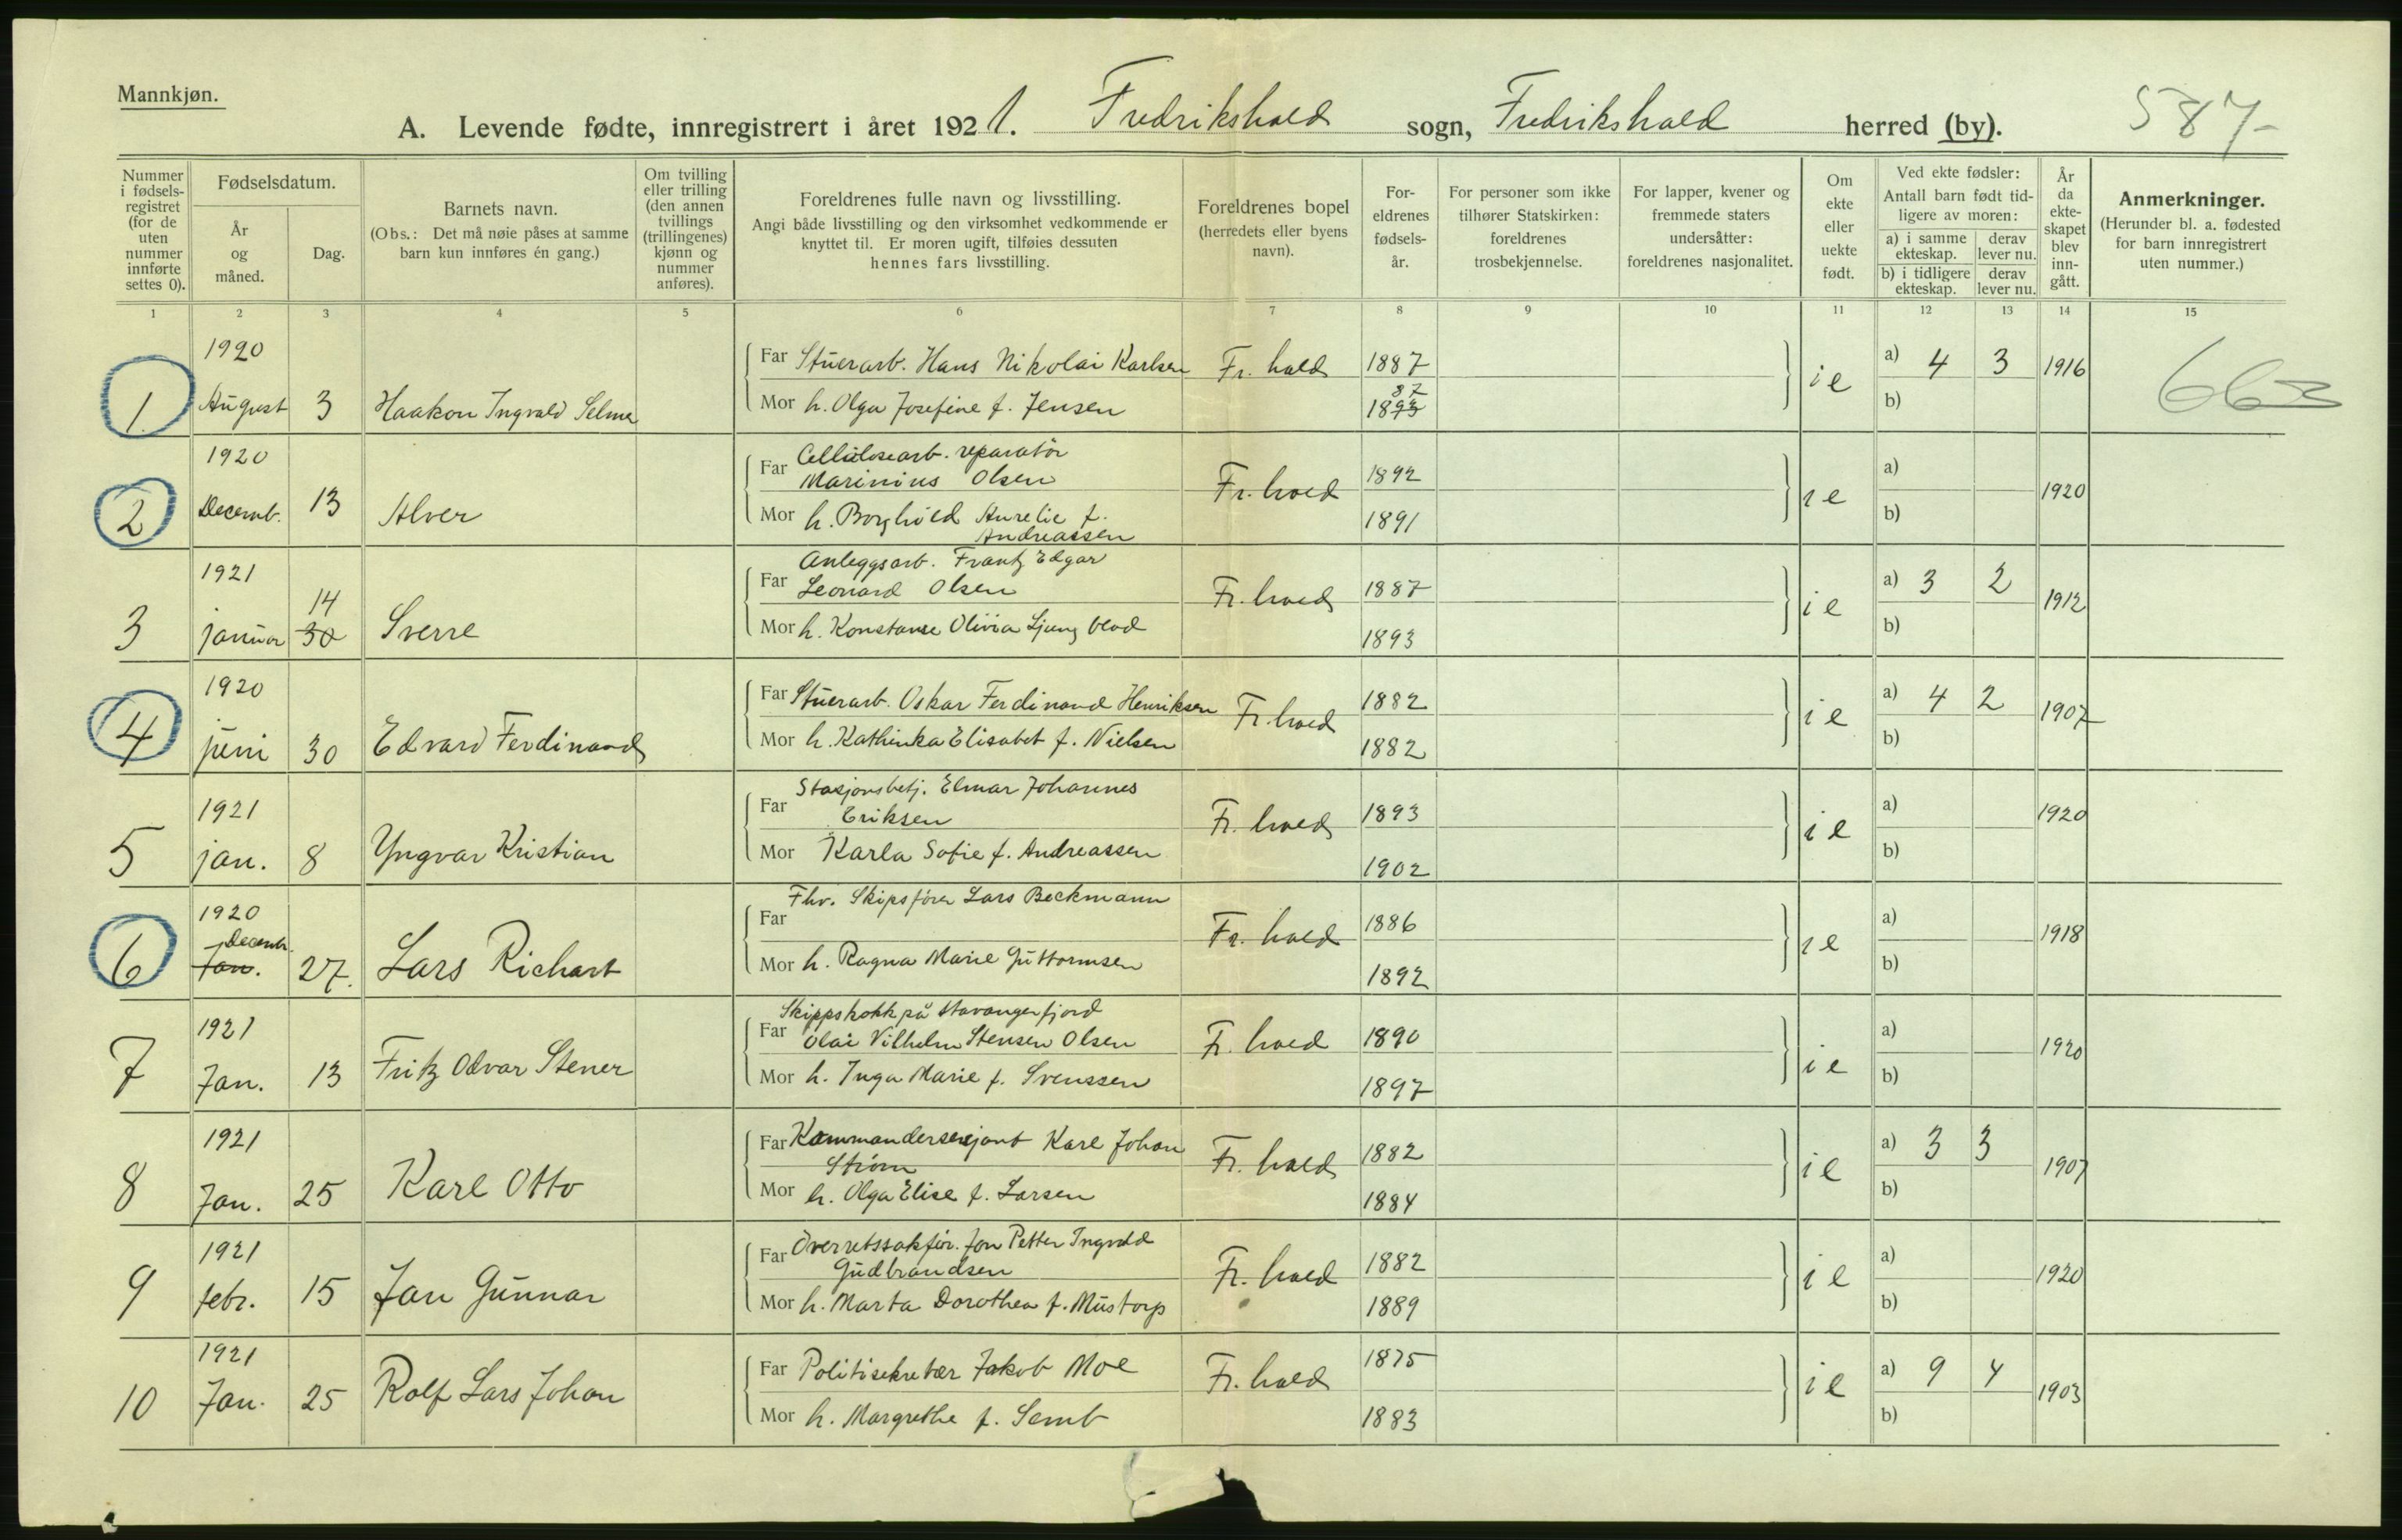 Mannkjøn.
A. Levende fødte, innregistrert i året 1921. Fredrikshald sogn, Fredrikshald herred (by). 587-
Nummer i fødsels-registret (for de uten nummer innførte settes 0).
Fødselsdatum.
År og måned.
Dag.
Barnets navn.
(Obs.: Det må nøie påses at samme barn kun innføres én gang.)
Om tvilling eller trilling (den annen tvillings (trillingenes) kjønn og nummer anføres).
Foreldrenes fulle navn og livsstilling.
Angi både livsstilling og den virksomhet vedkommende er knyttet til. Er moren ugift, tilføies dessuten hennes fars livsstilling.
Foreldrenes bopel (herredets eller byens navn).
For-eldrenes fødsels-år.
For personer som ikke tilhører Statskirken: foreldrenes trosbekjennelse.
For lapper, kvener og fremmede staters undersåtter: foreldrenes nasjonalitet.
Om ekte eller uekte født.
Ved ekte fødsler: Antall barn født tid-ligere av moren:
a) i samme ekteskap. derav lever nu.
b) i tidligere ekteskap. derav lever nu.
År da ekte-skapet blev inn-gått.
Anmerkninger.
(Herunder bl. a. fødested for barn innregistrert uten nummer.)
1 2 3 4 5 6 7 8 9 10 11 12 13 14 15
1920
1 August 3 Haakon Ingvald Selmer
Far Stuerarb. Hans Nikolai Karlsen Fr. hald 1887 ie a) 4 3 1916
87
Mor h. Olga Josefine f. Jensen 1893 b)
663
1920
2 Decemb. 13 Alver
Cellulosearb. reparatör
Far Marinius Olsen Fr. hald 1892 ie a) 1920
Mor h. Borghild Aurelie f. 1891 b)
Andreassen
1921
14
3 januar 30 Sverre
Anleggsarb. Frantz Edgar
Far Leonard Olsen Fr. hald 1887 ie a) 3 2 1912
Mor h. Konstanse Olivia Ljungblod 1893 b)
1920
4 juni 30 Edvard Ferdinand
Far Stuerarb. Oskar Ferdinand Henriksen Fr. hald 1882 ie a) 4 2 1907
Mor h. Kathinka Elisabet f. Nielsen 1882 b)
1921
5 jan. 8 Yngvar Kristian
Stasjonsbetj. Elmar Johannes
Far Eriksen Fr. hald 1893 ie a) 1920
Mor Karla Sofie f. Andreassen 1902 b)
1920
Decembr.
6 Jan. 27. Lars Richart
Fhv. Skipsförer Lars Beckmann
Far Fr. hald 1886 ie a) 1918
Mor h. Ragna Marie Guttormsen 1892 b)
1921
7 Jan. 13 Fritz Odvar Stener
Skippskokk på Stavangerfjord
Far Olai Vilhelm Stensen Olsen Fr. hald 1890 ie a) 1920
Mor h. Inga Marie f. Svenssen 1897 b)
1921
8 Jan. 25 Karl Otto
Far Kommandersersjant Karl Johan Fr. hald 1882 ie a) 3 3 1907
Ström
Mor h. Olga Elise f. Larsen 1884 b)
1921
9 febr. 15 Jan Gunnar
Far Overretssakfør. Jon Petter Ingvald
Gudbrandsen Fr. hald 1882 ie a) 1920
Mor h. Marta Dorothea f. Mustorp 1889 b)
1921
10 Jan. 25 Rolf Lars Johan
Far Politisekretær Jakob Moe Fr. hald 1875 ie a) 9 4 1903
Mor h. Margrethe f. Semb 1883 b)